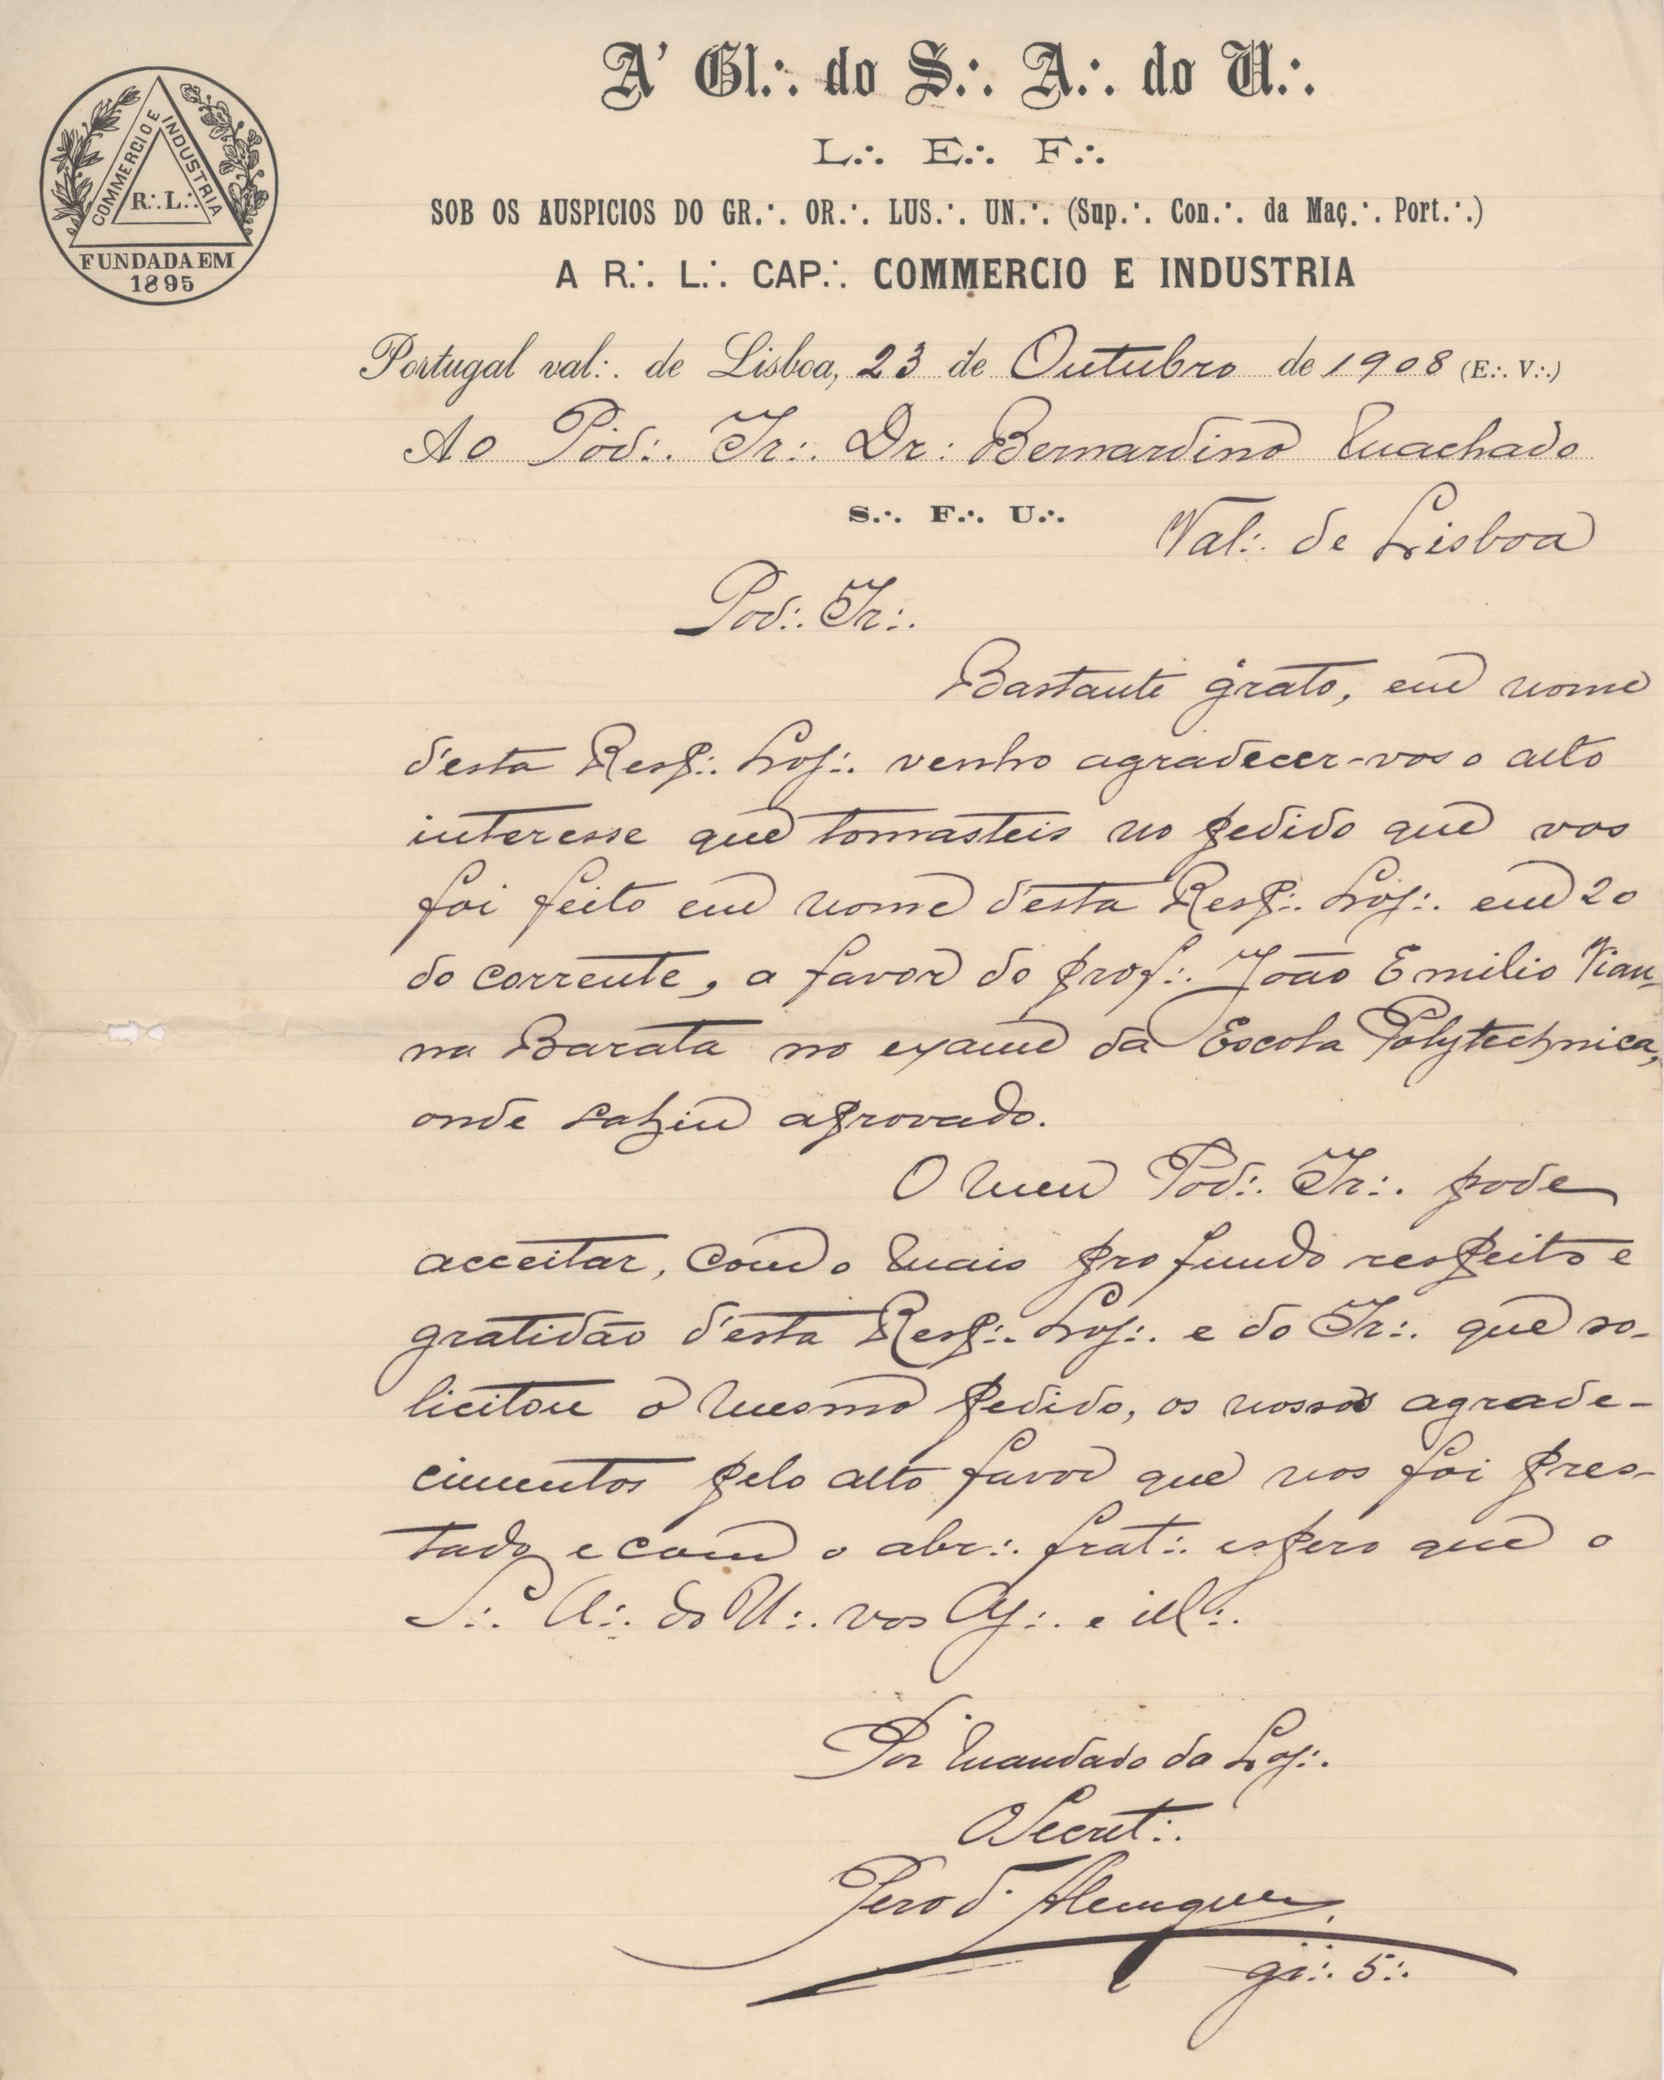 A' Gl.·. do S.·. A.·. do U.·.
L.·. E.·. F.·.
SOB OS AUSPICIOS DO GR.·. OR.·. LUS.·. UN.·. (Sup.·. Con.·. da Maç.·. Port.·.)
A R.·. L.·. CAP.·. COMMERCIO E INDUSTRIA
COMMERCIO E INDUSTRIA
R.·. L.·.
FUNDADA EM
1895
Portugal val.·. de Lisboa, 23 de Outubro de 1908 (E.·. V.·.)
Ao Pod.·. Ir.·. Dr.: Bernardino Machado
S.·. F.·. U.·.
Val.·. de Lisboa
Pod.·. Ir.·.
Bastante grato, em nome
d'esta Resp.·. Loj.·. venho agradecer-vos o alto
interesse que tomasteis no pedido que vos
foi feito em nome d'esta Resp.·. Loj.·. em 20
do corrente, a favor do prof.·. João Emilio Vian-
na Barata no exame da Escola Polytechnica,
onde sahiu aprovado.
O meu Pod.·. Ir.·. pode
acceitar, com o mais profundo respeito e
gratidão d'esta Resp.·. Loj.·. e do Ir.·. que so-
licitou o mesmo pedido, os nossos agrade-
cimentos pelo alto favor que nos foi pres-
tado e com o abr.·. frat.·. espero que o
S.·. A.·. do U.·. vos Aj.·. e ill.·.
Por mandado da Loj.·.
O Secret.·.
Pero d'Alemquer
gr.·. 5.·.